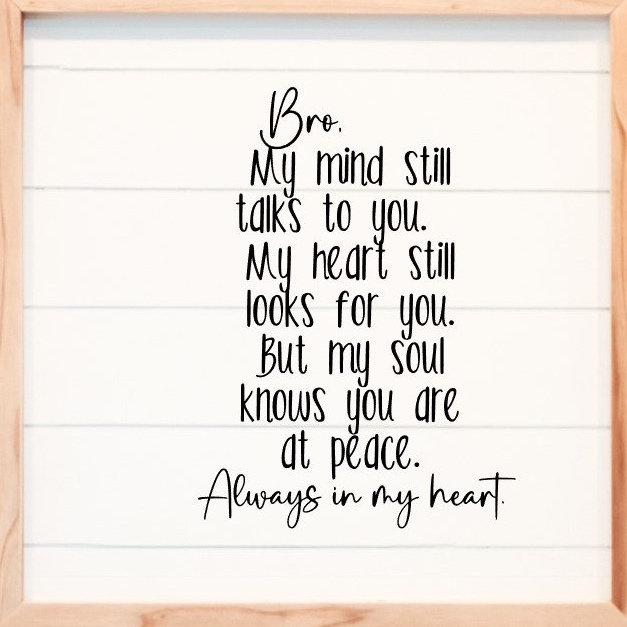 Bro,
My mind still
talks to you.
My heart still
looks for you.
But my soul
knows you are
at peace.
Always in my heart.